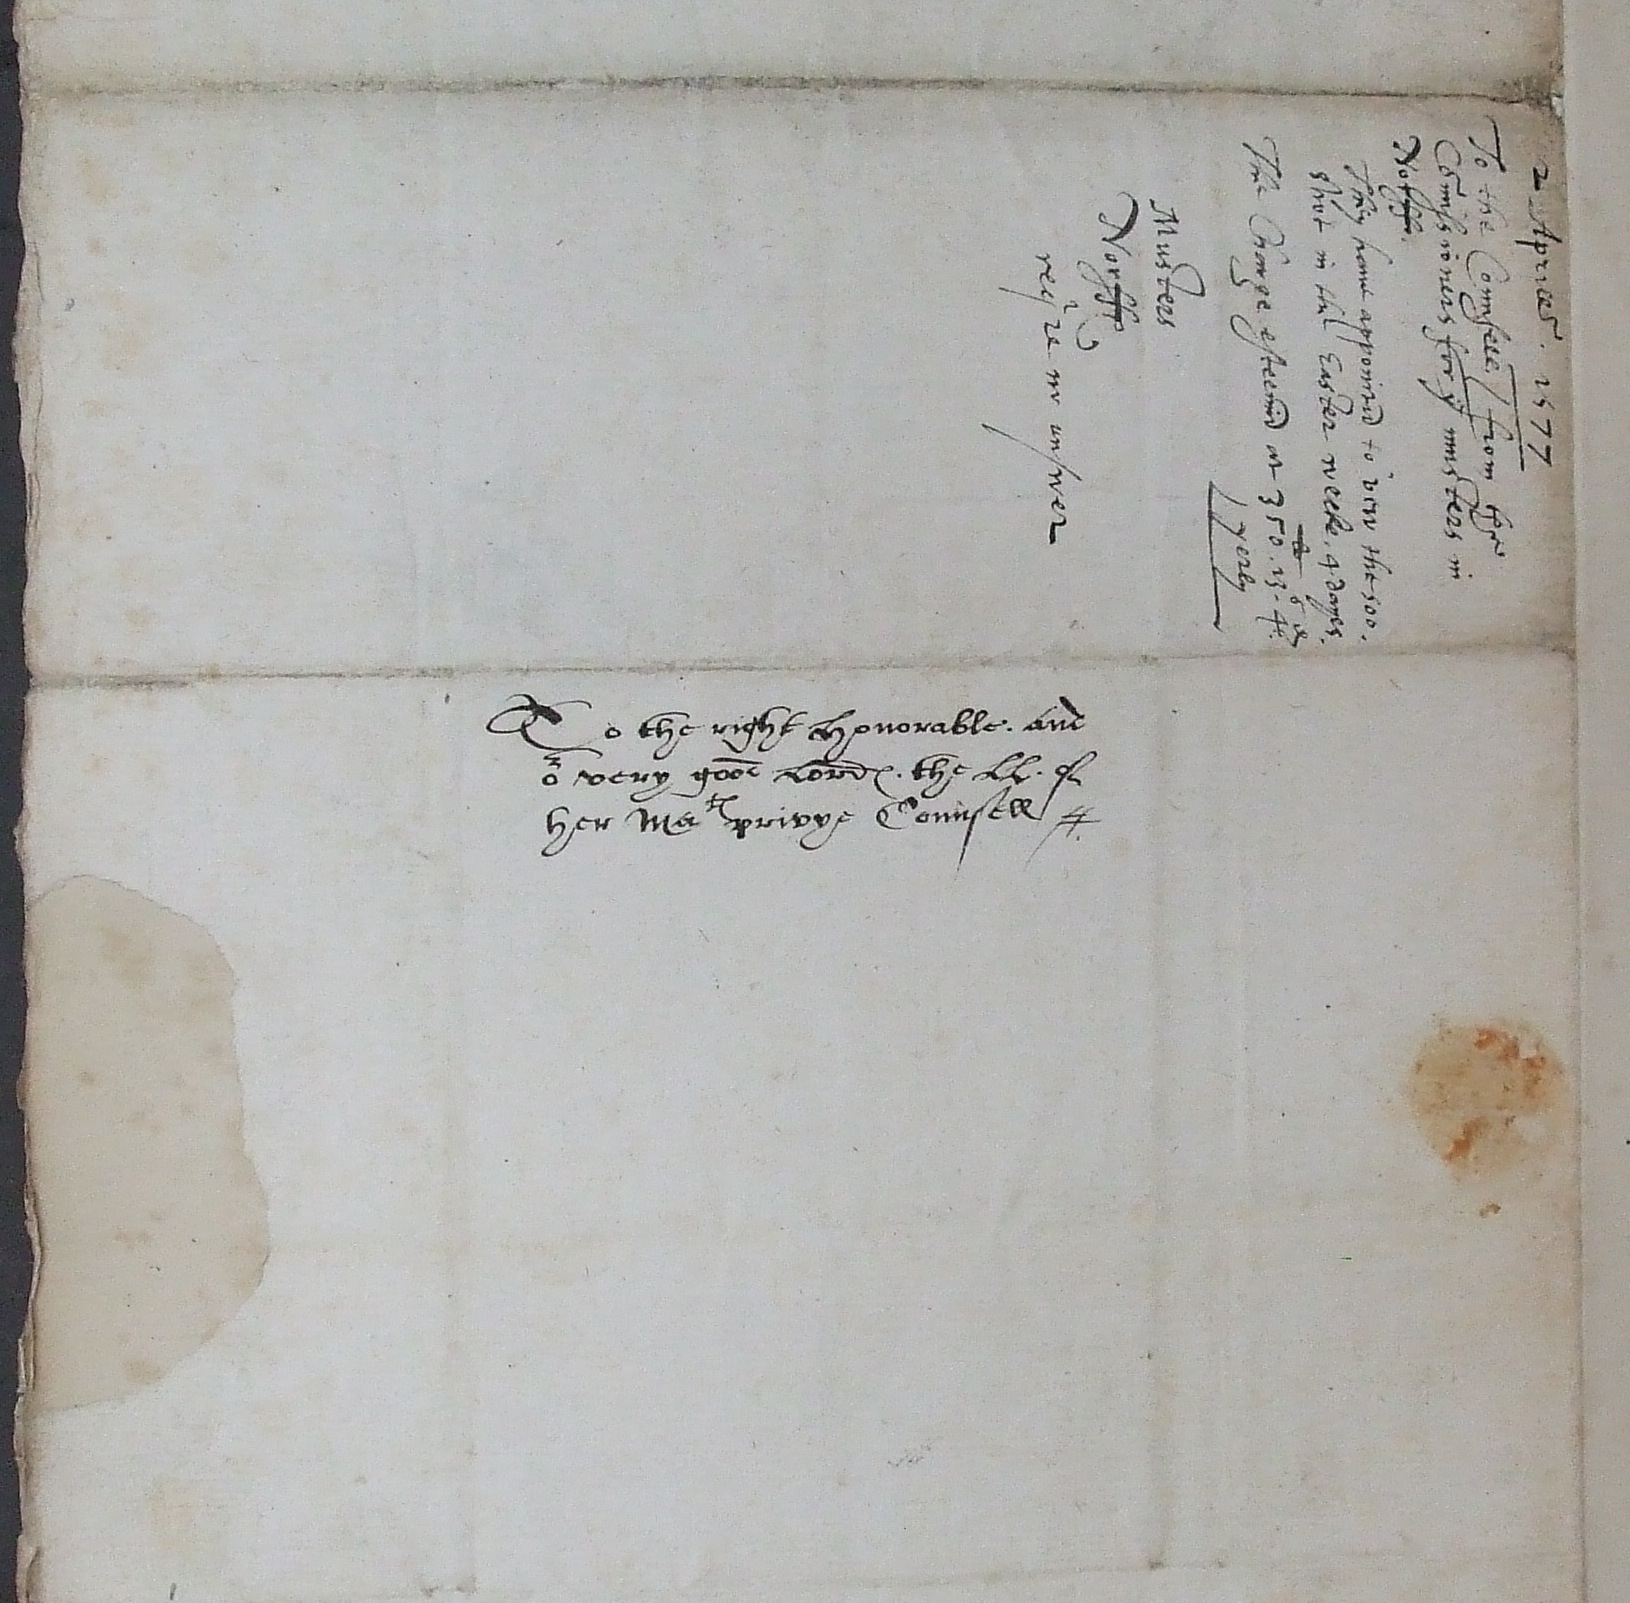 2 Aprilis. 1577
To the Counsell / from the
Comissioners for ye musters in
Norff.
They haue appointed to vew the 500.
shot in the Easter weeke. 4 dayes.
The Charge esteemed at 350li. 13s. 4d.
yerly
Musters
Norff
reqire no answer
To the right honorable. and
or very good Lordes. the LL. of
her Mates privye Counsell